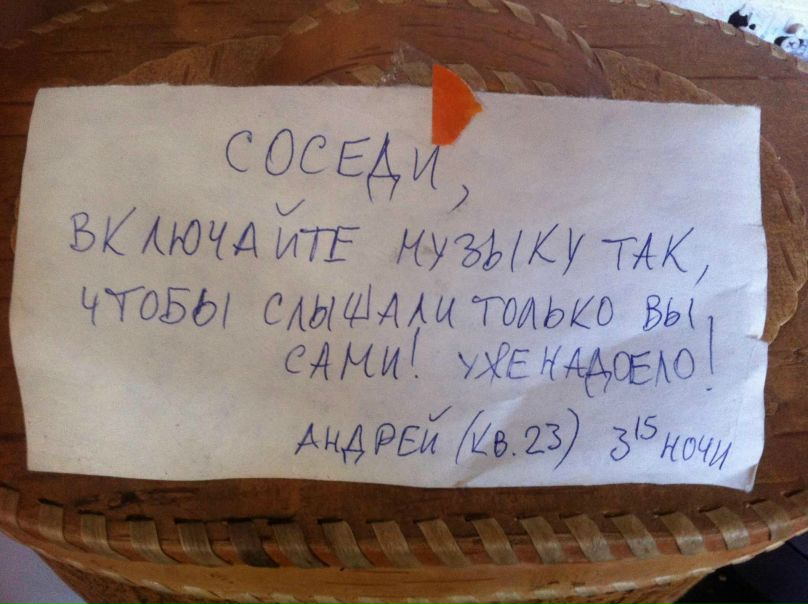 СОСЕДИ,
ВКЛЮЧАЙТЕ МУЗЫКУ ТАК,
ЧТОБЫ СЛЫШАЛИ ТОЛЬКО ВЫ
САМИ! УЖЕ НАДОЕЛО!
АНДРЕЙ (КВ. 23) 3¹⁵ НОЧИ